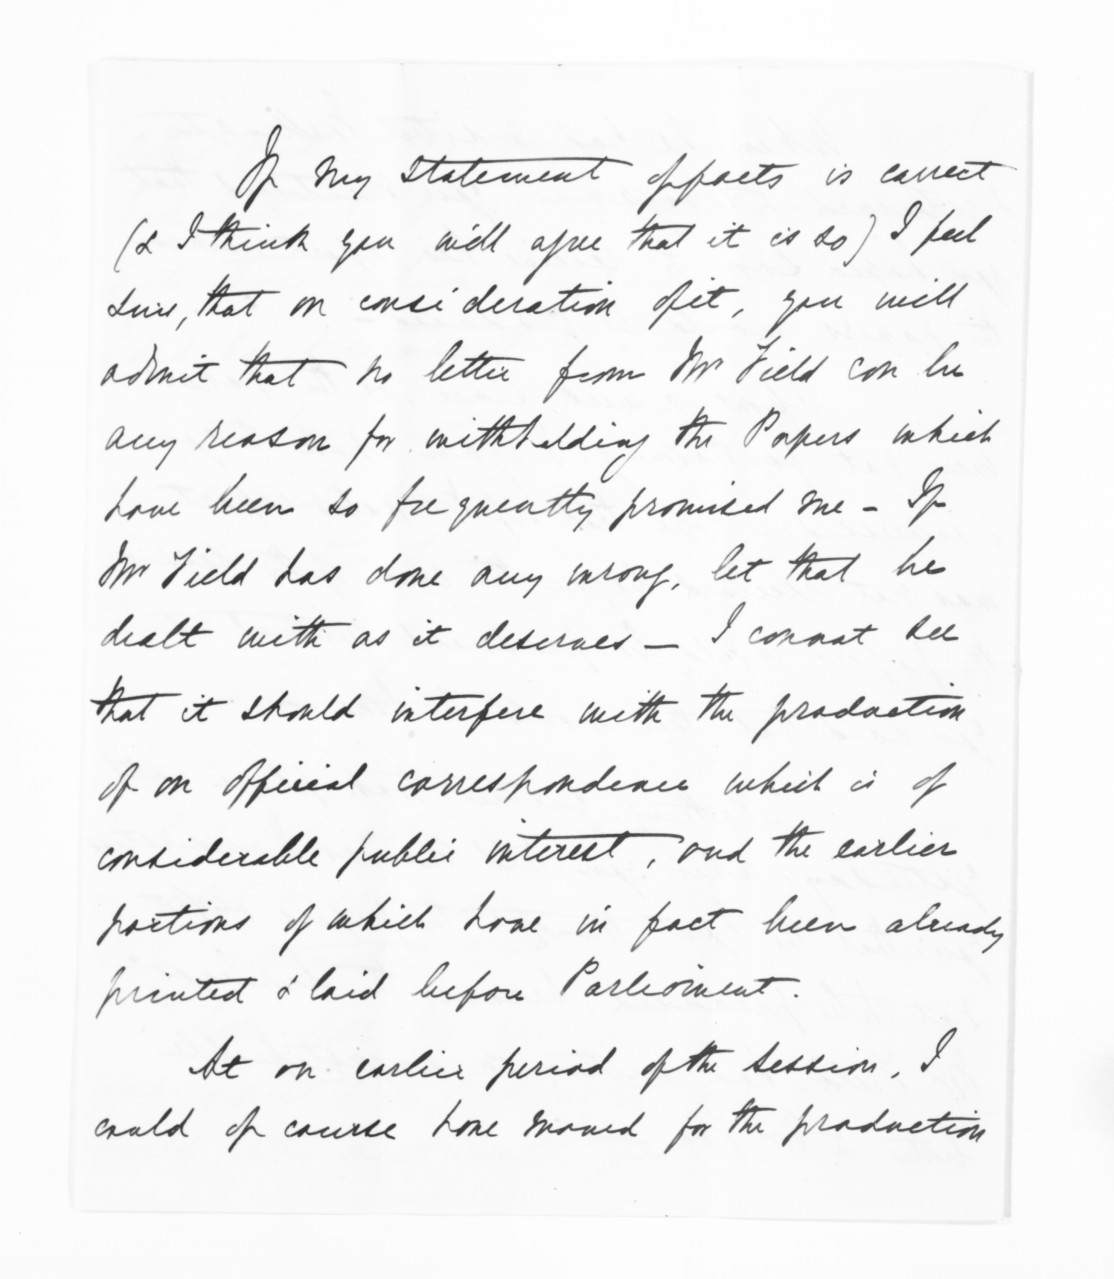 If my statement of facts is correct
(& I think you will agree that it is so) I feel
sure, that on consideration of it, you will
admit that no letter from Mr Field can be
any reason for withholding the Papers which
have been so frequently promised me – If
Mr Field has done any wrong, let that be
dealt with as it deserves – I cannot see
that it should interfere with the production
of an official correspondence which is of
considerable public interest, and the earlier
portions of which have in fact been already
printed & laid before Parliament.
At an earlier period of the session, I
could of course have moved for the production